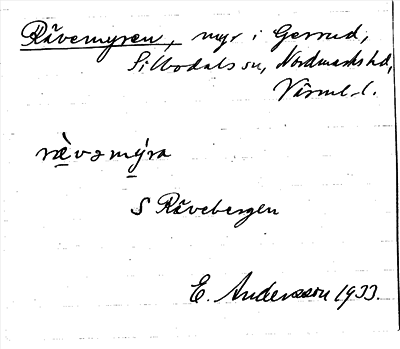 Rävemyren, myr i Gersrud,
Silbodals sn, Nordmarks hd,
Värml. l.
ræ̀vəmýra
S Rävebergen
E. Andersson 1933.